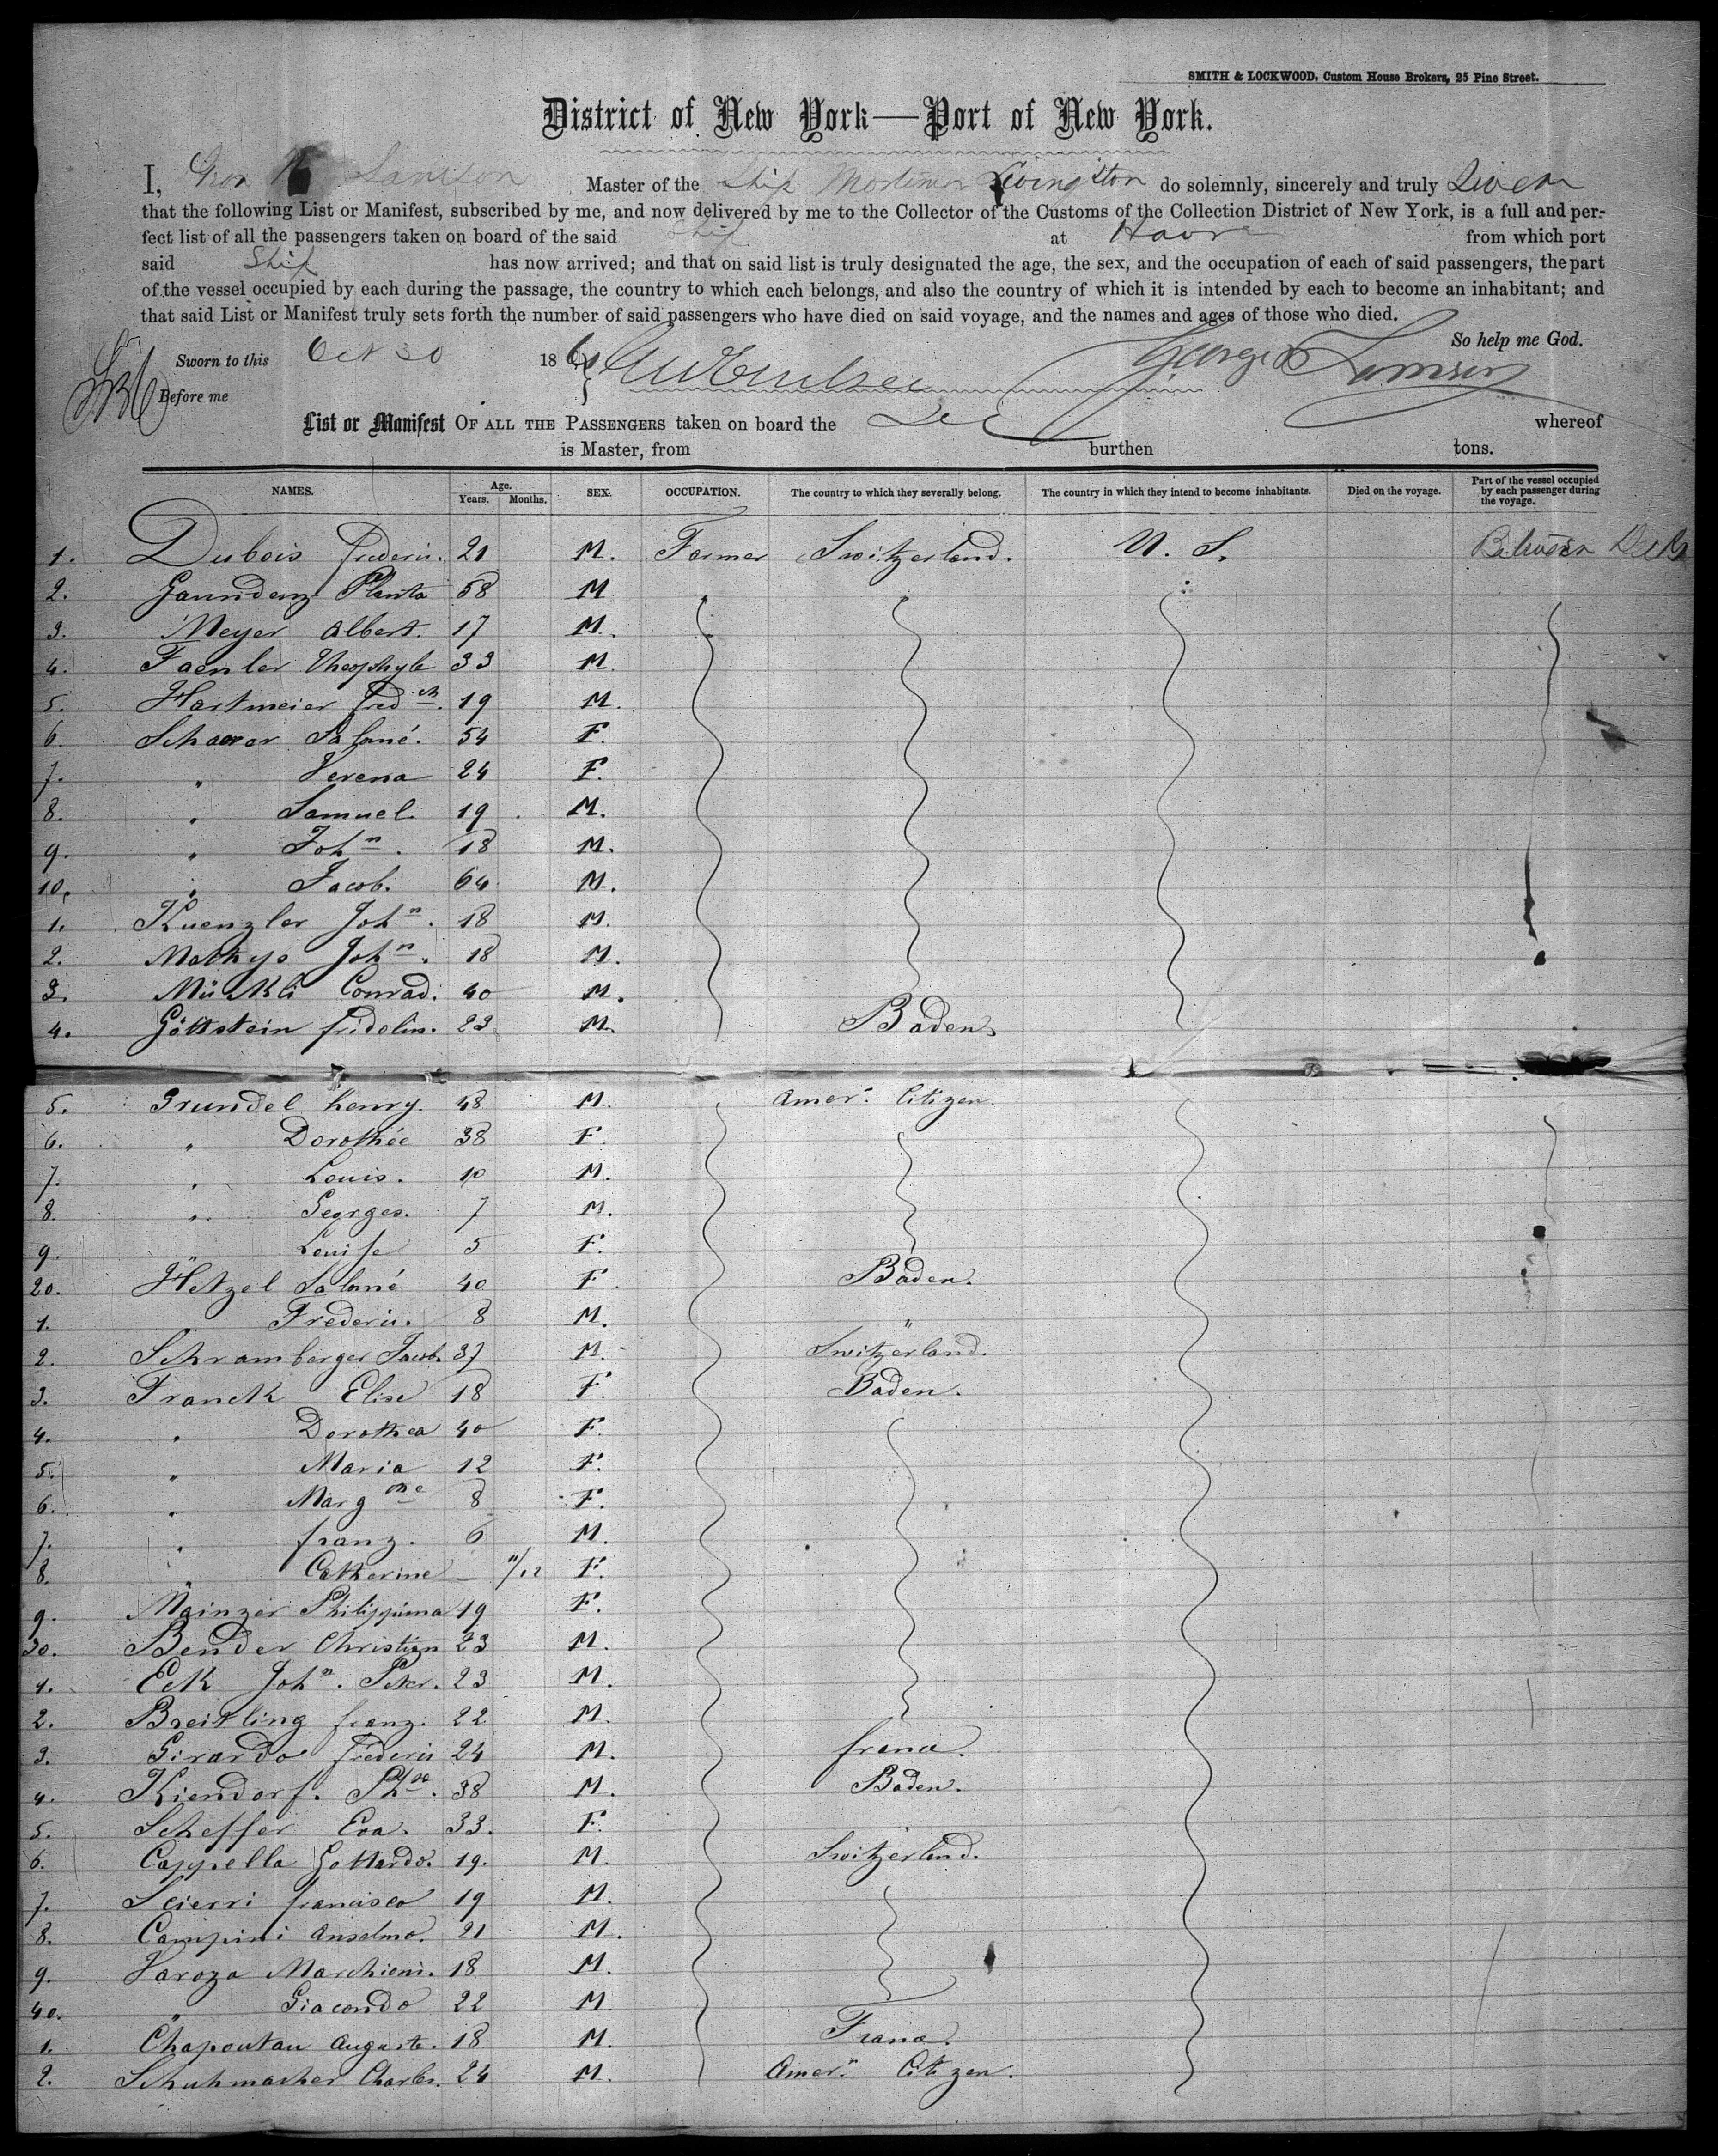 SMITH & LOCKWOOD, Custom House Brokers, 25 Pine Street.
District of New York—Port of New York.
I, Master of the Ship Mortimer Livingston do solemnly, sincerely and truly Swear
that the following List or Manifest, subscribed by me, and now delivered by me to the Collector of the Customs of the Collection District of New York, is a full and per-
fect list of all the passengers taken on board of the said Ship at Havre from which port
said Ship has now arrived; and that on said list is truly designated the age, the sex, and the occupation of each of said passengers, the part
of the vessel occupied by each during the passage, the country to which each belongs, and also the country of which it is intended by each to become an inhabitant; and
that said List or Manifest truly sets forth the number of said passengers who have died on said voyage, and the names and ages of those who died.
So help me God.
Sworn to this Oct 30 18
Before me
List or Manifest OF ALL THE PASSENGERS taken on board the whereof
is Master, from burthen tons.
NAMES. Age. Years. Months. SEX. OCCUPATION. The country to which they severally belong. The country in which they intend to become inhabitants. Died on the voyage. Part of the vessel occupied by each passenger during the voyage.
1. Dubois Frederic. 21 M. Farmer Switzerland. U. S. Between Deck
2. Gaundenz Planta 58 M
3. Meyer Albert. 17 M.
4. Faenler Theophyle 33 M.
5. Hartmeier Fred ch. 19 M.
6. Schaerer Salomé. 54 F.
7. " Verena 24 F.
8. " Samuel. 19 M.
9. " Joh n. 18 M.
10. " Jacob. 64 M.
1. Kuenzler Joh n. 18 M.
2. Mathys Joh n. 18 M.
3. Conrad. 40 M.
4. Göttstein Fridolin. 23 M. Baden
5. Grundel henry. 48 M. Amer. Citizen
6. " Dorothée 38 F.
7. " Louis. 10 M.
8. " Georges. 7 M.
9. " Louise 5 F.
20. Hetzel Salomé 40 F. Baden.
1. Frederic. 8 M. "
2. Schramberger Jacob. 37 M. Switzerland.
3. Franck Elise 18 F. Baden.
4. " Dorothea 40 F.
5. " Maria 12 F.
6. " Marg the 8 F.
7. " franz. 6 M.
8. " Catherine — 11/12 F.
9. Mainzer Philippina 19 F.
30. Bender Christian 23 M.
1. Eck Joh n. Peter. 23 M.
2. Breitling franz. 22 M.
3. Girardo frederic 24 M. france.
4. Kiendorf. 38 M. Baden.
5. Scheffer Eva. 33. F.
6. Cappella Gottardo. 19. M. Switzerland.
7. Scierri francisco 19 M.
8. Campini Anselmo. 21 M.
9. Varoza Marchioni. 18 M.
40. " Giacondo 22 M
1. Chapoutau Auguste. 18 M. France.
2. Schuhmacher Charles. 24 M. Amer. Citizen.